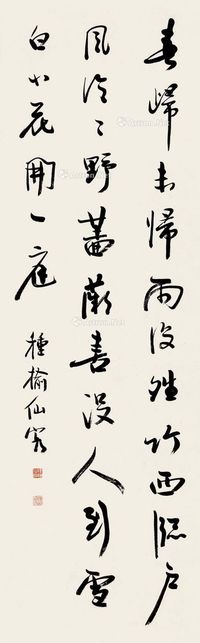 春歸未歸雨復夝竹西臨戶
風泠〻野薔薇喜沒人到雪
白小花開一庭
種榆仙客